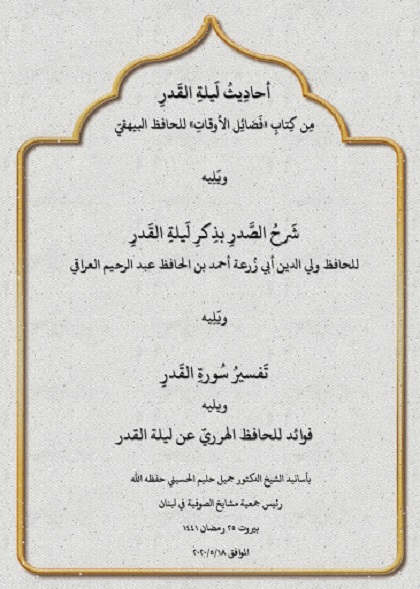 أحادِيثُ لَيلةِ القَدرِ
مِن كِتابِ «فَضائِل الأوقات» للحافظ البيهقيّ
ويَلِيه
شَرحُ الصَّدرِ بِذِكرِ لَيلةِ القَدرِ
للحافظ ولي الدين أبي زُرعة أحمد بن الحافظ عبد الرحيم العراقي
ويَلِيه
تَفسيرُ سُورةِ القَدرِ
ويليه
فوائد للحافظ الهرريّ عن ليلة القدر
بأسانيد الشيخ الدكتور جميل حليم الحسيني حفظه الله
رئيس جمعية مشايخ الصوفية في لبنان
بيروت ٢٥ رمضان ١٤٤١
الموافق ٢٠٢٠/٥/١٨